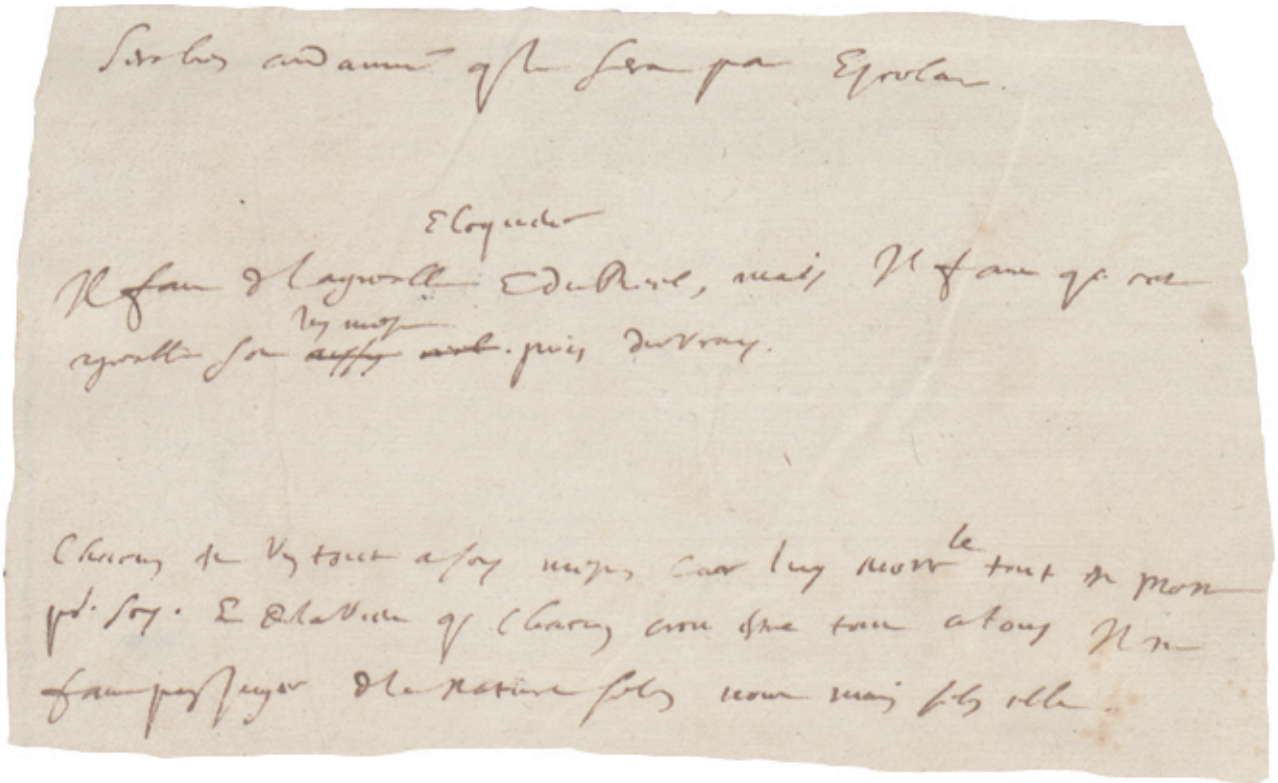 Sera bien condamné q le sera par Escobar.
Eloquence
Il faut de l'agreable Et du Reel, mais Il faut q cet
agreable soit luy mesme pris du vray.
Chacun est Un tout a soy mesme car luy mort le tout est mort
pr soy. Et de la vient q Chacun croit estre tout a tous Il ne
faut pas juger de la nature selon nous mais selon elle.